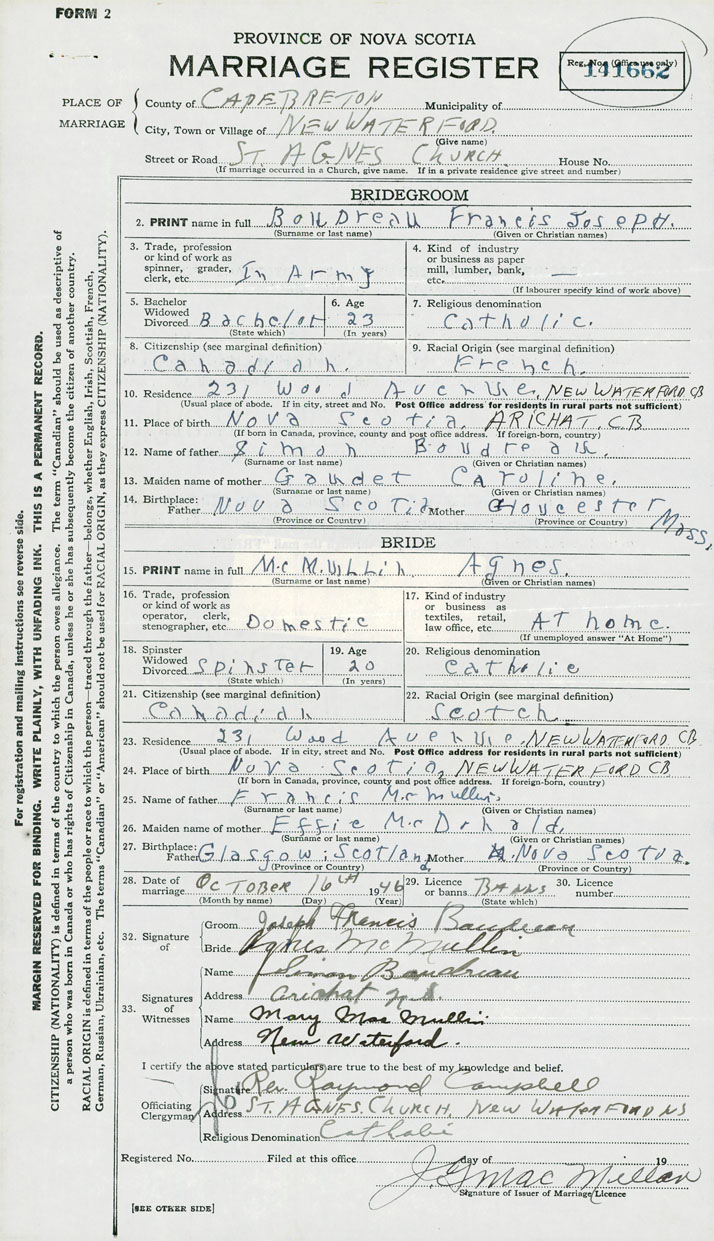 FORM 2
PROVINCE OF NOVA SCOTIA
MARRIAGE REGISTER
Reg. No. (Office use only)
141662
PLACE OF MARRIAGE
County of CAPE BRETON Municipality of
City, Town or Village of NEW WATERFORD.
(Give name)
Street or Road ST. AGNES CHURCH. House No.
(If marriage occurred in a Church, give name. If in a private residence give street and number)
BRIDEGROOM
2. PRINT name in full Boudreau Francis Joseph.
(Surname or last name) (Given or Christian names)
3. Trade, profession or kind of work as spinner, grader, clerk, etc. In Army
4. Kind of industry or business as paper mill, lumber, bank, etc. —
(If labourer specify kind of work above)
5. Bachelor Widowed Divorced Bachelor
(State which)
6. Age 23
(In years)
7. Religious denomination Catholic.
8. Citizenship (see marginal definition) Canadian.
9. Racial Origin (see marginal definition) French.
10. Residence 231 Wood Avenue, NEW WATERFORD CB
(Usual place of abode. If in city, street and No. Post Office address for residents in rural parts not sufficient)
11. Place of birth Nova Scotia, ARICHAT. C.B
(If born in Canada, province, county and post office address. If foreign-born, country)
12. Name of father Simon Boudreau.
(Surname or last name) (Given or Christian names)
13. Maiden name of mother Gaudet Caroline.
(Surname or last name) (Given or Christian names)
14. Birthplace: Father Nova Scotia Mother Gloucester Mass.
(Province or Country) (Province or Country)
BRIDE
15. PRINT name in full Mc Mullin Agnes.
(Surname or last name) (Given or Christian names)
16. Trade, profession or kind of work as operator, clerk, stenographer, etc. Domestic
17. Kind of industry or business as textiles, retail, law office, etc. AT home.
(If unemployed answer "At Home")
18. Spinster Widowed Divorced Spinster
(State which)
19. Age 20
(In years)
20. Religious denomination Catholic
21. Citizenship (see marginal definition) Canadian
22. Racial Origin (see marginal definition) Scotch
23. Residence 231 Wood Avenue, NEW WATERFORD CB
(Usual place of abode. If in city, street and No. Post Office address for residents in rural parts not sufficient)
24. Place of birth Nova Scotia, NEW WATERFORD CB
(If born in Canada, province, county and post office address. If foreign-born, country)
25. Name of father Francis McMullin
(Surname or last name) (Given or Christian names)
26. Maiden name of mother Effie McDonald.
(Surname or last name) (Given or Christian names)
27. Birthplace: Father Glasgow: Scotland Mother Nova Scotia.
(Province or Country) (Province or Country)
28. Date of marriage OCTOBER 16TH 1946
(Month by name) (Day) (Year)
29. Licence or banns BANNS
(State which)
30. Licence number
32. Signature of
Groom Joseph Francis Baudreau
Bride Agnes McMullin
33. Signatures of Witnesses
Name Simon Baudreau
Address Arichat N.S.
Name Mary MacMullin
Address New Waterford.
I certify the above stated particulars are true to the best of my knowledge and belief.
Officiating Clergyman
Signature Rev. Raymond Campbell
Address ST. AGNES CHURCH, NEW WATERFORD NS
Religious Denomination Catholic
Registered No. Filed at this office day of 19
J. G. MacMillan
Signature of Issuer of Marriage Licence
[SEE OTHER SIDE]
For registration and mailing instructions see reverse side.
MARGIN RESERVED FOR BINDING. WRITE PLAINLY, WITH UNFADING INK. THIS IS A PERMANENT RECORD.
CITIZENSHIP (NATIONALITY) is defined in terms of the country to which the person owes allegiance. The term "Canadian" should be used as descriptive of
a person who was born in Canada or who has rights of Citizenship in Canada, unless he or she has subsequently become the citizen of another country.
RACIAL ORIGIN is defined in terms of the people or race to which the person—traced through the father—belongs, whether English, Irish, Scottish, French,
German, Russian, Ukrainian, etc. The terms "Canadian" or "American" should not be used for RACIAL ORIGIN, as they express CITIZENSHIP (NATIONALITY).